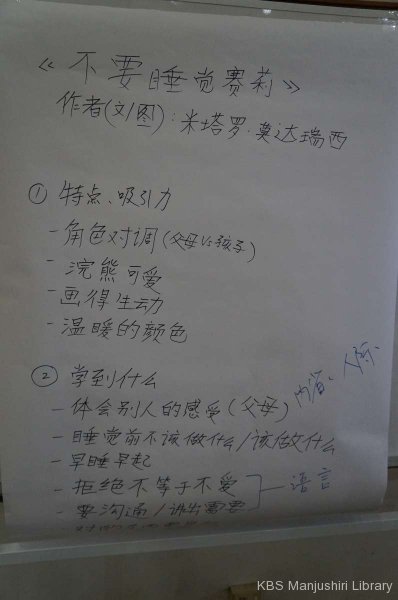 《不要睡觉赛莉》
作者(文/图)：米塔罗·莫达瑞西
① 特点、吸引力
- 角色对调(父母vs孩子)
- 浣熊可爱
- 画得生动
- 温暖的颜色
② 学到什么
内省、人际、
- 体会别人的感受(父母)
- 睡觉前不该做什么/该做什么
- 早睡早起
- 拒绝不等于不爱
语言
- 要沟通/讲出需要
KBS Manjushiri Library